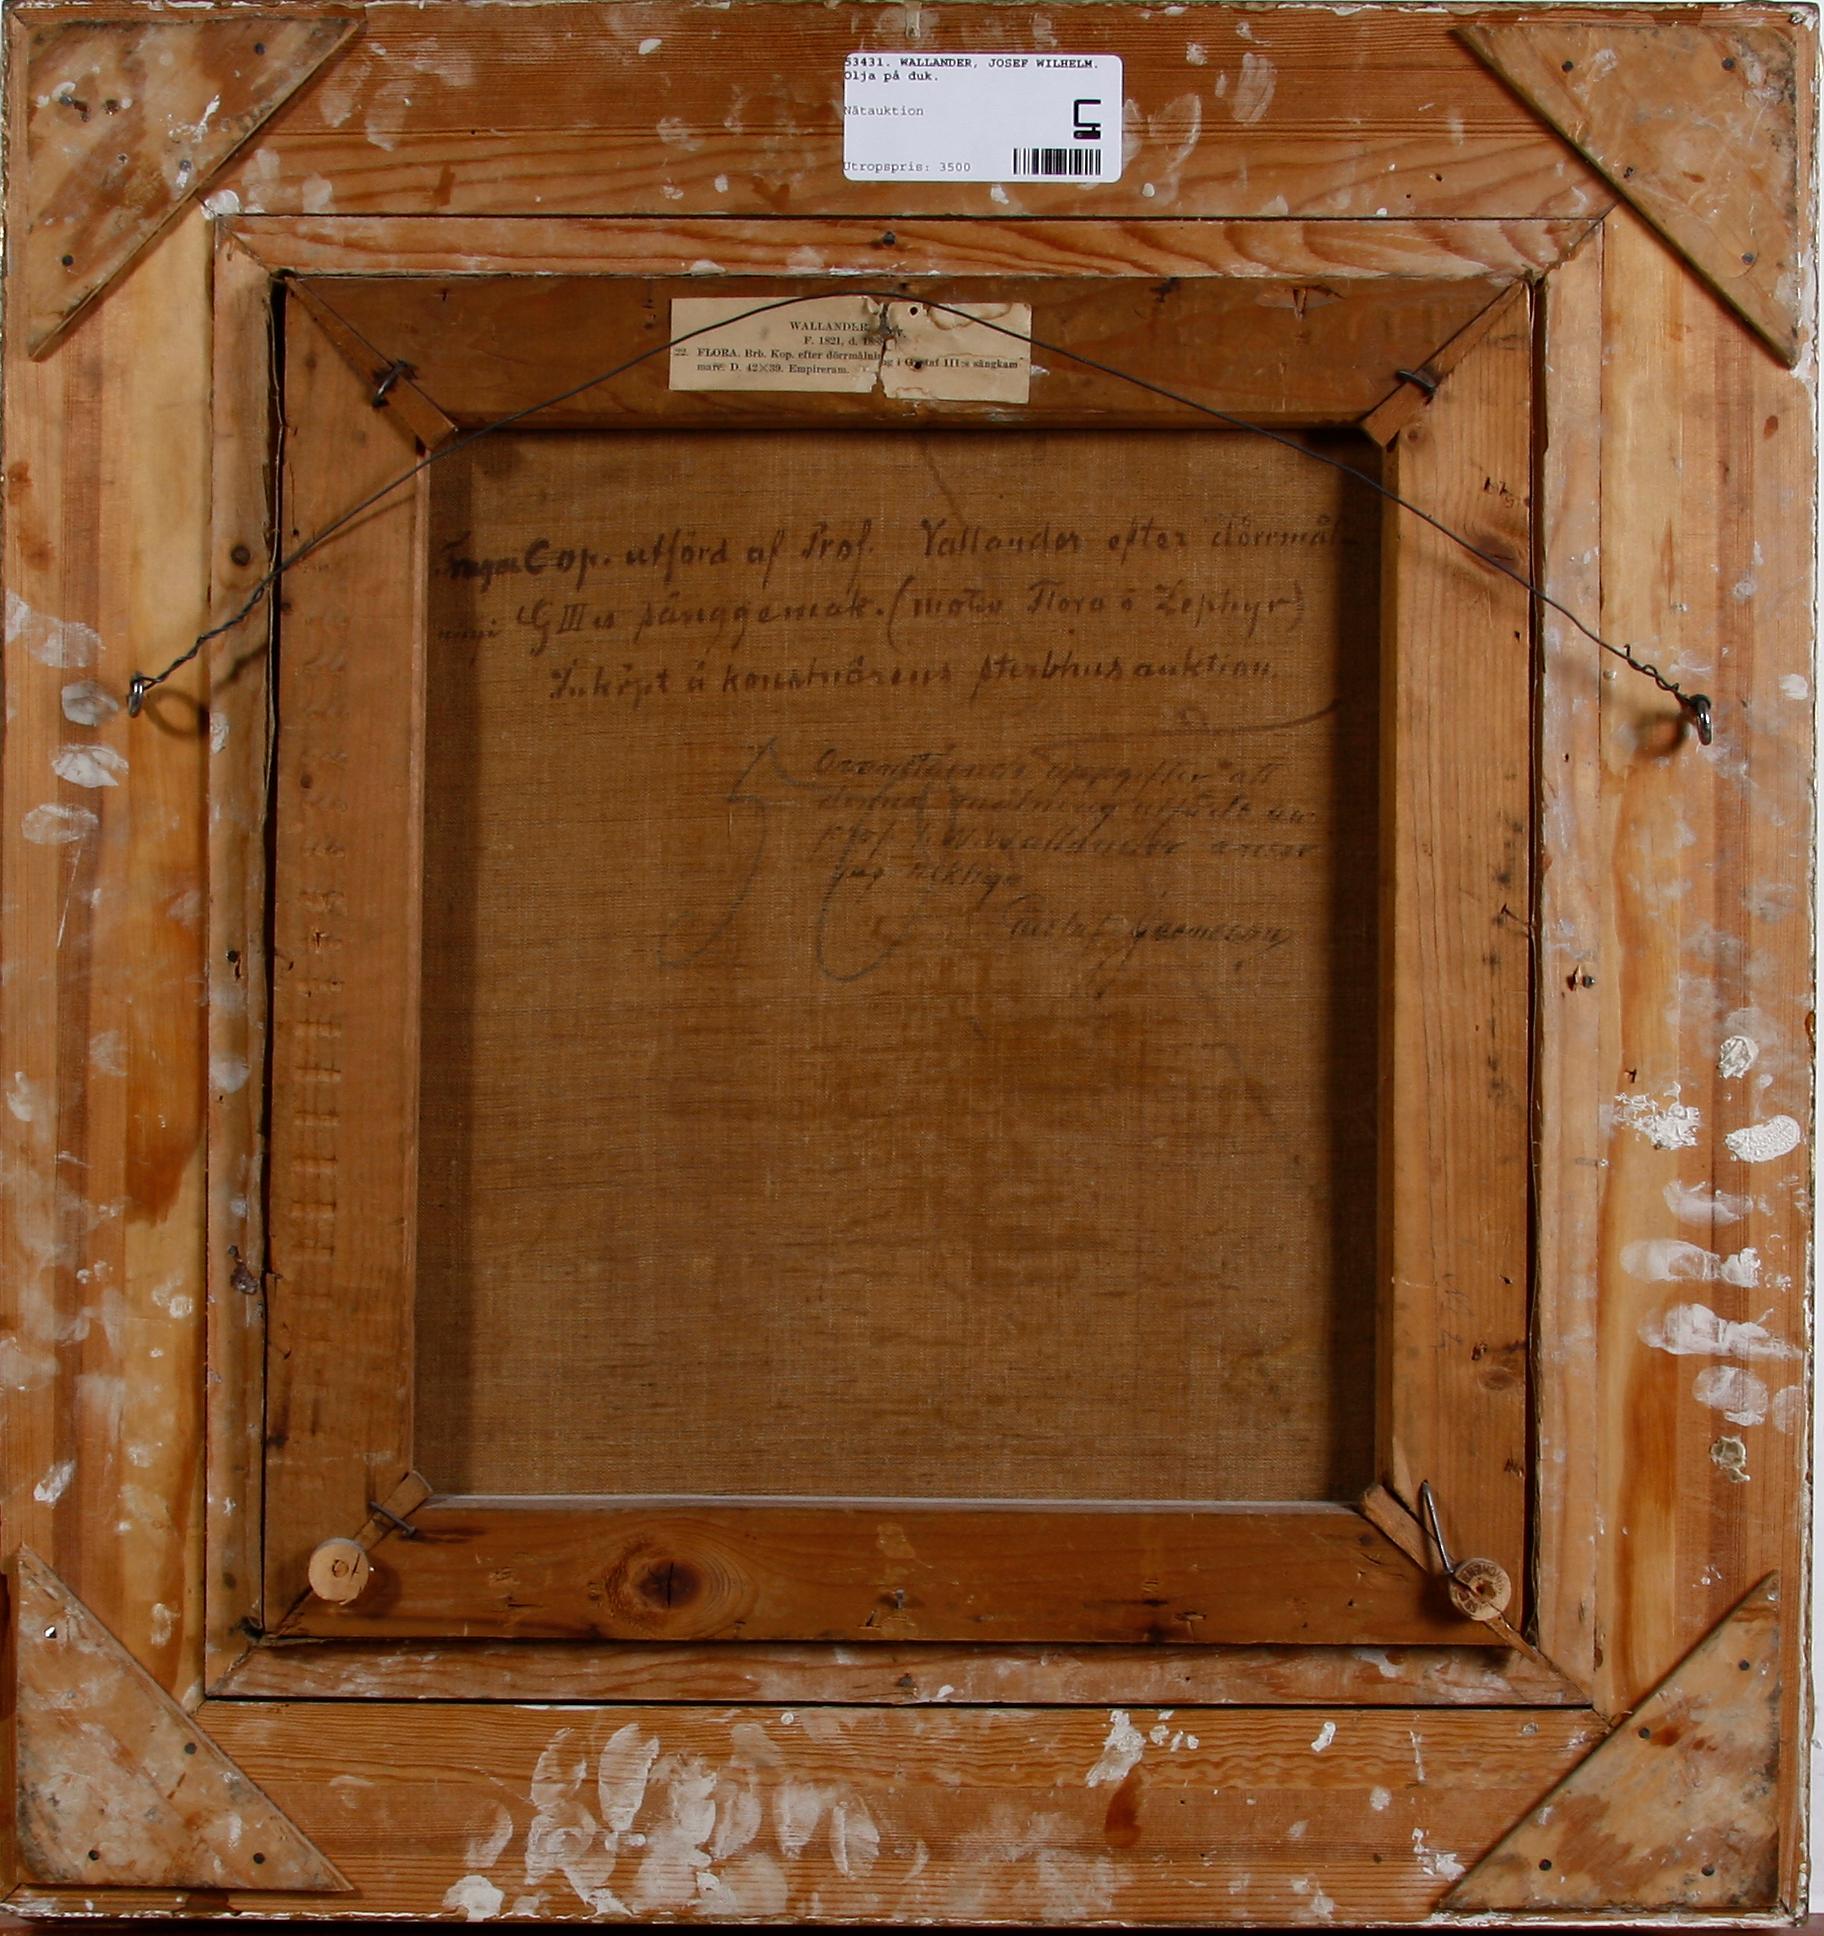 53431. WALLANDER, JOSEF WILHELM.
Olja på duk.
Nätauktion
Utropspris: 3500
WALLANDER,
F. 1821, d.
22. FLORA. Brb. Kop. efter dörrmålning i Gustaf III:s sängkam-
mare. D. 42×39. Empireram.
Cop. utförd af Prof. Vallander efter dörrmål-
G III es sänggemak. (motiv Flora o Zephyr)
Inköpt å konstnärens sterbhus auktion.
Ovanstående uppgifter att
denna målning utförts av
Prof. J. W. Wallander anser
jag riktiga
Gustaf